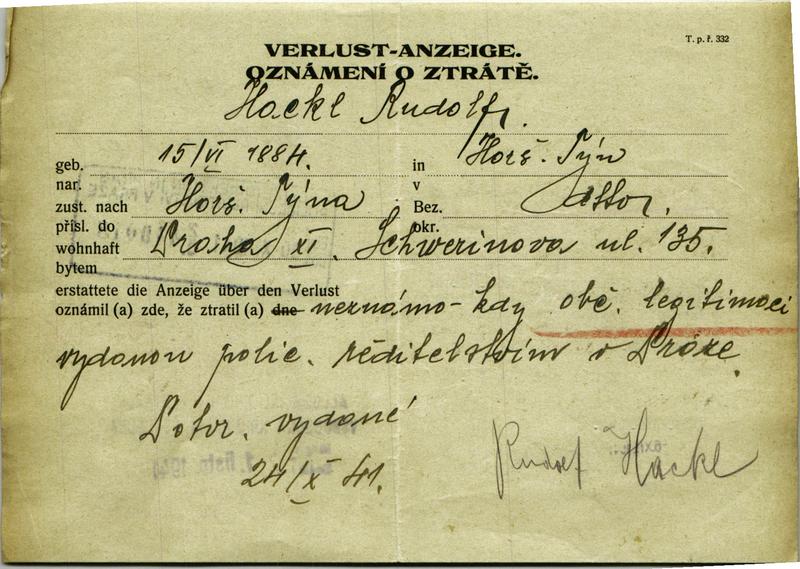 T. p. ř. 332
VERLUST-ANZEIGE.
OZNÁMENÍ O ZTRÁTĚ.
Hackl Rudolf,
geb. 15/VI 1884. in Horš. Týn
nar. v
zust. nach Horš. Týna Bez.
přísl. do okr.
wohnhaft Praha XI. Schwerinova ul. 135.
bytem
erstattete die Anzeige über den Verlust
oznámil (a) zde, že ztratil (a) dne neznámo-kdy obč. legitimaci
vydanou polic. ředitelstvím v Praze.
Potvr. vydané
24/X 41.
Rudolf Hackl